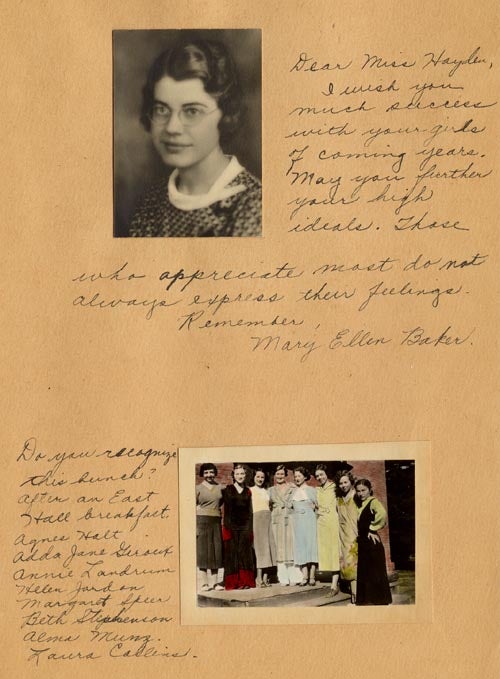 Dear Miss Hayden,
I wish you
much success
with your girls
of coming years.
May you further
your high
ideals. Those
who appreciate most do not
always express their feelings.
Remember,
Mary Ellen Baker.
Do you recognize
this bunch?
After an East
Hall breakfast.
Agnes Holt
Adda Jane Geroux
Annie Landrum
Helen Jardon
Margaret Speer
Beth Stephenson
Alma Munz.
Laura Collins.